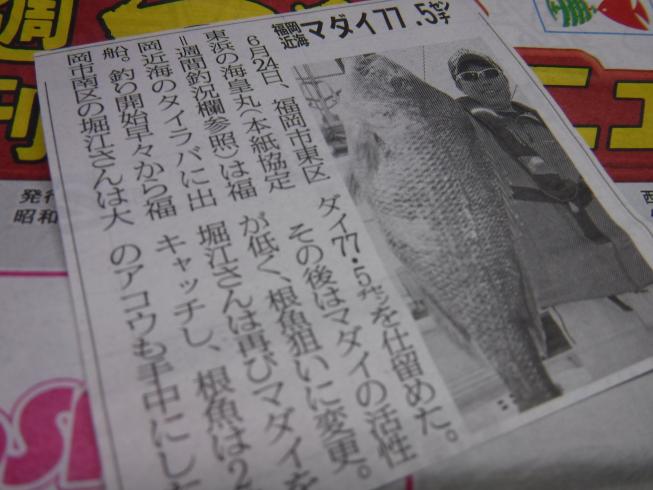 福岡近海 マダイ77.5センチ
6月24日、福岡市東区
東浜の海皇丸(本紙協定
=週間釣況欄参照)は福
岡近海のタイラバに出
船。釣り開始早々から福
岡市南区の堀江さんは大
ダイ77・5センチを仕留めた。
その後はマダイの活性
が低く、根魚狙いに変更。
堀江さんは再びマダイを
キャッチし、根魚は2
のアコウも手中にした
週
刊
ニュ
発行
昭和
西